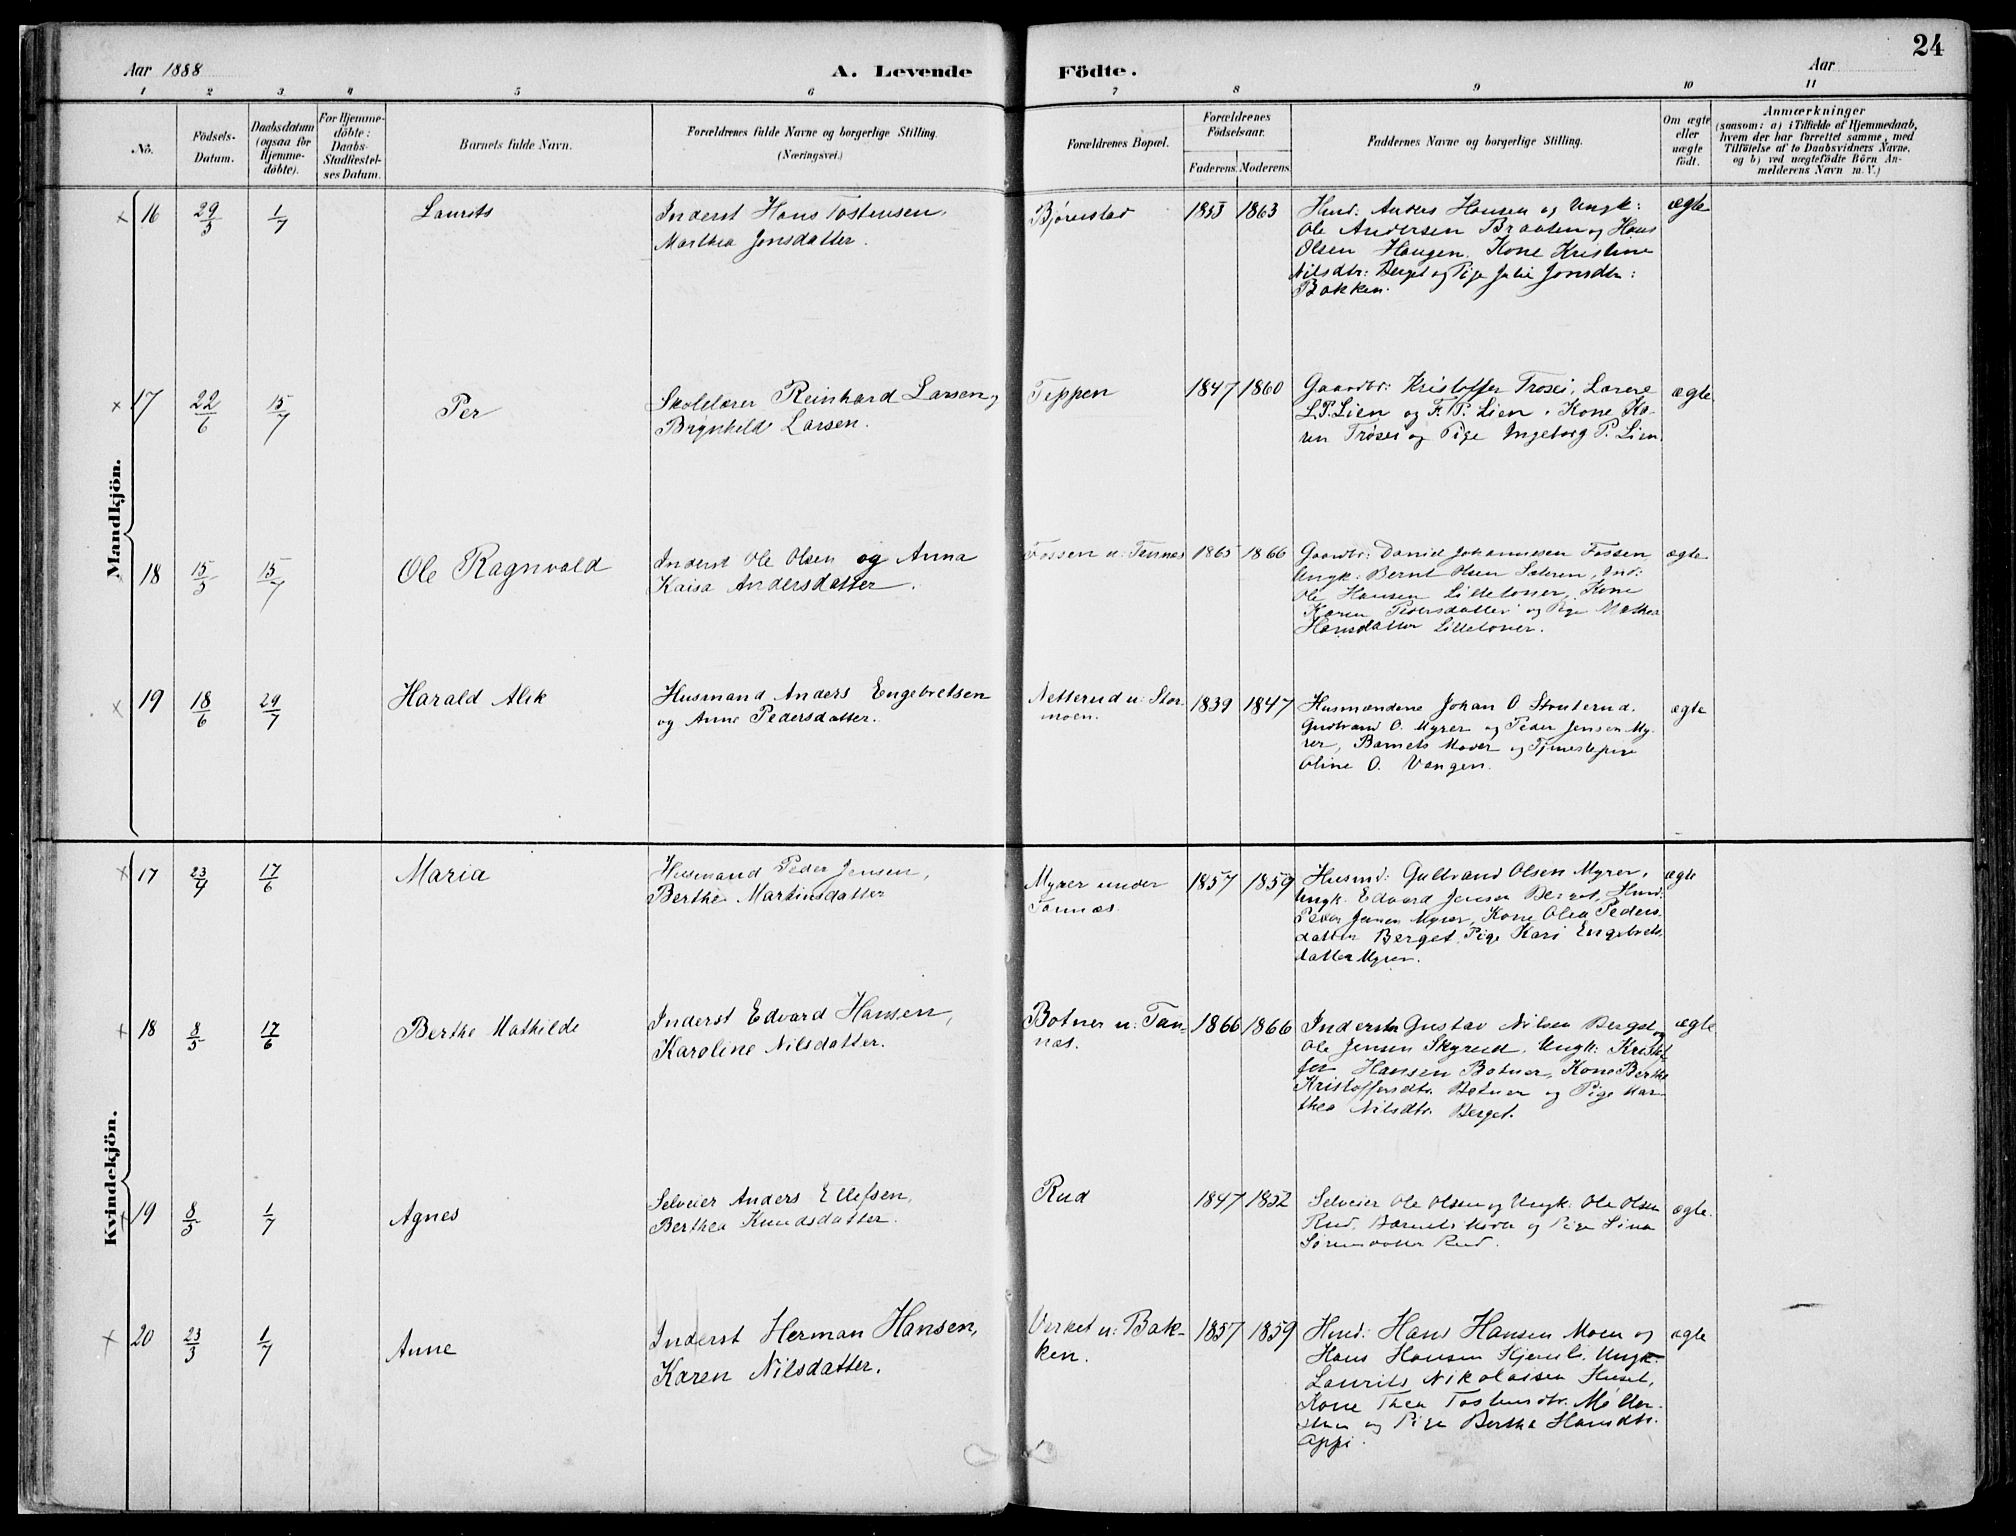 24
Aar 1888
A. Levende
Födte.
Aar
1 2 3 4 5 6 7 8 9 10 11
No.
Födsels-Datum.
Daabsdatum (ogsaa for Hjemme-döbte).
For Hjemme-döbte: Daabs-Stadfæstel-ses Datum.
Barnets fulde Navn.
Forældrenes fulde Navne og borgerlige Stilling.
(Næringsvei.)
Forældrenes Bopæl.
Forældrenes Födselsaar.
Faderens. Moderens.
Faddernes Navne og borgerlige Stilling.
Om ægte eller uægte födt.
Anmærkninger
(saasom: a) i Tilfælde af Hjemmedaab,
hvem der har forrettet samme, med
Tilföielse af to Daabsvidners Navne,
og b) ved uægtefödte Börn An-
melderens Navn m. V.)
Mandkjön.
16 29/5 1/7 Laurits
Inderst Hans Tostensen,
Marthea Jonsdatter.
Bjørnstad 1863
Husd: Anders Hansen og Ungk:
Ole Andersen Braaten og Hans
Olsen Haugen. Kone Kristine
Nilsdtr: Berget og Pige Julie Jonsdtr:
Bakken.
ægte
17 22/6 15/7 Per
Skolelærer Reinhard Larsen,
Brynhild Larsen.
Teppen 1847 1860
Gaardbr: Kristoffer Trøsei, Lærere
L.P. Lien og F. P. Lien. Kone Ka-
ren Trøsei og Pige Ingeborg P. Lien.
ægte
18 15/5 15/7 Ole Ragnvald
Inderst Ole Olsen og Anna
Kaisa Andersdatter.
Fossen u: Tannæs 1865 1866
Gaardbr: Daniel Johannesen Fossen
Ungk: Bernt Olsen Sæteren, Ind:
Ole Hansen Lilletoner, Kone
Karen Pedersdatter og Pige Mathea
Hansdatter Lilletoner.
ægte
19 18/6 29/7 Harald Alik
Husmand Anders Engebretsen
og Anne Pedersdatter.
Netterud u: Stor-
moen. 1839 1847
Husmændene Johan O. Struterud.
Gudbrand O. Myrer og Peder Jensen My-
rer, Barnets Moder og Tjenestepige
Oline O. Vangen.
ægte
Kvindekjön.
17 23/4 17/6 Maria
Husmand Peder Jensen,
Berthe Martinsdatter
Myrer under
Tannæs. 1857 1859
Husmd: Gulbrand Olsen Myrer,
Ungk. Edvard Jensen Berget, Husd:
Peder Jensen Myrer, Kone Olea Peders-
datter Berget, Pige Kari Engebrets-
datter Myrer.
ægte
18 8/5 17/6 Berthe Mathilde
Inderst Edvard Hansen,
Karoline Nilsdatter.
Botner u: Tan-
næs. 1866 1866
Inderster Gustav Nilsen Berget og
Ole Jensen Skyrud. Ungk: Kristof-
fer Hansen Botner, Kone Berthe
Kristoffersdtr. Botner og Pige Mar-
thea Nilsdtr. Berget.
ægte
19 8/5 1/7 Agnes
Selveier Anders Ellefsen,
Berthea Knudsdatter.
Rud 1847 1852
Selveier Ole Olsen og Ungk: Ole Olsen
Rud. Barnets Moder og Pige Lina
Sørensdatter Rud.
ægte.
20 23/3 1/7 Anne
Inderst Herman Hansen,
Karen Nilsdatter.
Virket u: Bak-
ken. 1857 1859
Husd: Hans Hansen Moen og
Hans Hansen Ungk:
Laurits Nikolaisen Huset,
Kone Thea Tostensdtr. Møller-
og Pige Berthe Hansdtr.
Oppi.
ægte